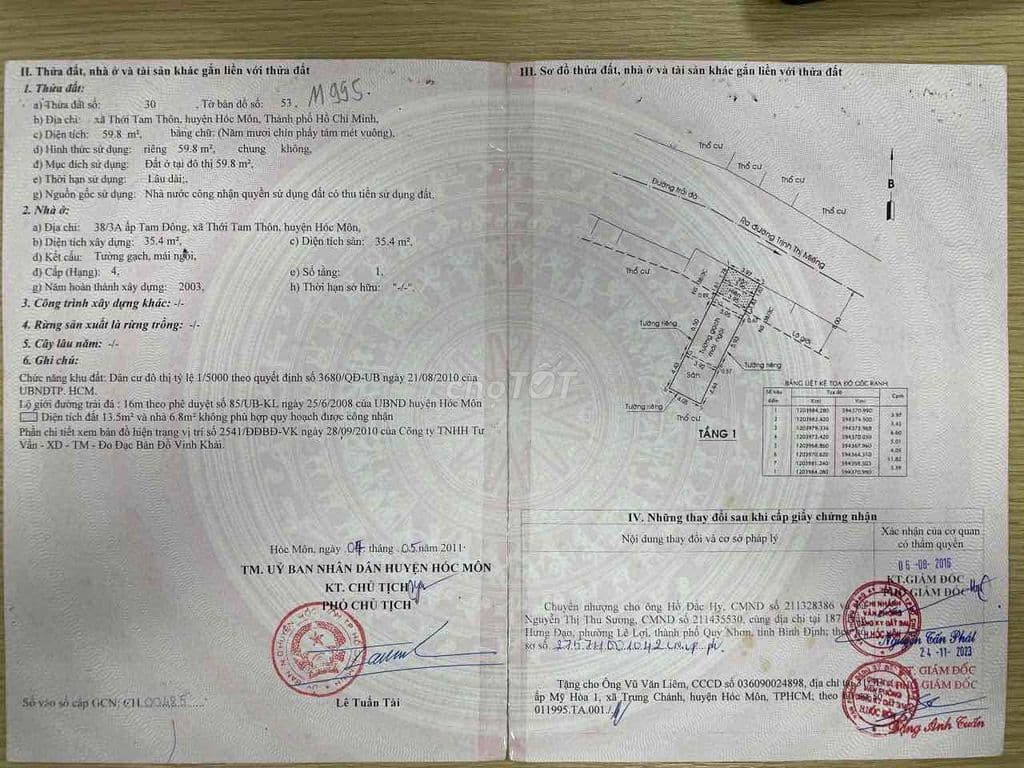 II. Thửa đất, nhà ở và tài sản khác gắn liền với thửa đất
1. Thửa đất:
a) Thửa đất số: 30 , Tờ bản đồ số: 53, M995.
b) Địa chỉ: xã Thới Tam Thôn, huyện Hóc Môn, Thành phố Hồ Chí Minh,
c) Diện tích: 59.8 m², bằng chữ: (Năm mươi chín phẩy tám mét vuông),
d) Hình thức sử dụng: riêng 59.8 m², chung không,
đ) Mục đích sử dụng: Đất ở tại đô thị 59.8 m²,
e) Thời hạn sử dụng: Lâu dài;,
g) Nguồn gốc sử dụng: Nhà nước công nhận quyền sử dụng đất có thu tiền sử dụng đất.
2. Nhà ở:
a) Địa chỉ: 38/3A ấp Tam Đông, xã Thới Tam Thôn, huyện Hóc Môn,
b) Diện tích xây dựng: 35.4 m², c) Diện tích sàn: 35.4 m²,
d) Kết cấu: Tường gạch, mái ngói,
đ) Cấp (Hạng): 4, e) Số tầng: 1,
g) Năm hoàn thành xây dựng: 2003, h) Thời hạn sở hữu: "-/-".
3. Công trình xây dựng khác: -/-
4. Rừng sản xuất là rừng trồng: -/-
5. Cây lâu năm: -/-
6. Ghi chú:
Chức năng khu đất: Dân cư đô thị tỷ lệ 1/5000 theo quyết định số 3680/QĐ-UB ngày 21/08/2010 của
UBNDTP. HCM.
Lộ giới đường trải đá : 16m theo phê duyệt số 85/UB-KL ngày 25/6/2008 của UBND huyện Hóc Môn
Diện tích đất 13.5m² và nhà 6.8m² không phù hợp quy hoạch được công nhận
Phần chi tiết xem bản đồ hiện trạng vị trí số 2541/ĐĐBĐ-VK ngày 28/09/2010 của Công ty TNHH Tư
Vấn - XD - TM - Đo Đạc Bản Đồ Vinh Khải.
Hóc Môn, ngày 04 tháng 05 năm 2011
TM. UỶ BAN NHÂN DÂN HUYỆN HÓC MÔN
KT. CHỦ TỊCH
PHÓ CHỦ TỊCH
Lê Tuấn Tài
Số vào sổ cấp GCN: CH 00485
III. Sơ đồ thửa đất, nhà ở và tài sản khác gắn liền với thửa đất
Thổ cư
Thổ cư
Thổ cư
Thổ cư
B
Đường trải đá
Ra đường Trịnh Thị Miếng
Thổ cư
3.97
Lộ giới
8.00
Tường riêng
Tường gạch
mái ngói
Tường riêng
Sân
Tường riêng
Thổ cư
TẦNG 1
BẢNG LIỆT KÊ TỌA ĐỘ GÓC RANH
Số hiệu điểm
Tọa độ
Cạnh
X(m) Y(m)
IV. Những thay đổi sau khi cấp giấy chứng nhận
Nội dung thay đổi và cơ sở pháp lý
Xác nhận của cơ quan
có thẩm quyền
06-08-2016
KT.GIÁM ĐỐC
PHÓ GIÁM ĐỐC
Chuyển nhượng cho ông Hồ Đắc Hy, CMND số 211328386 và
Nguyễn Thị Thu Sương, CMND số 211435530, cùng địa chỉ tại 187
Hưng Đạo, phường Lê Lợi, thành phố Quy Nhơn, tỉnh Bình Định; theo
CHI NHÁNH
VĂN PHÒNG
ĐĂNG KÝ ĐẤT ĐAI
H.HÓC MÔN
Nguyễn Tấn Phát
24-11-2023
KT. GIÁM ĐỐC
PHÓ GIÁM ĐỐC
Tặng cho Ông Vũ Văn Liêm, CCCD số 036090024898, địa chỉ tại
ấp Mỹ Hòa 1, xã Trung Chánh, huyện Hóc Môn, TPHCM; theo hồ sơ số
011995.TA.001./.
Đặng Anh Tuấn